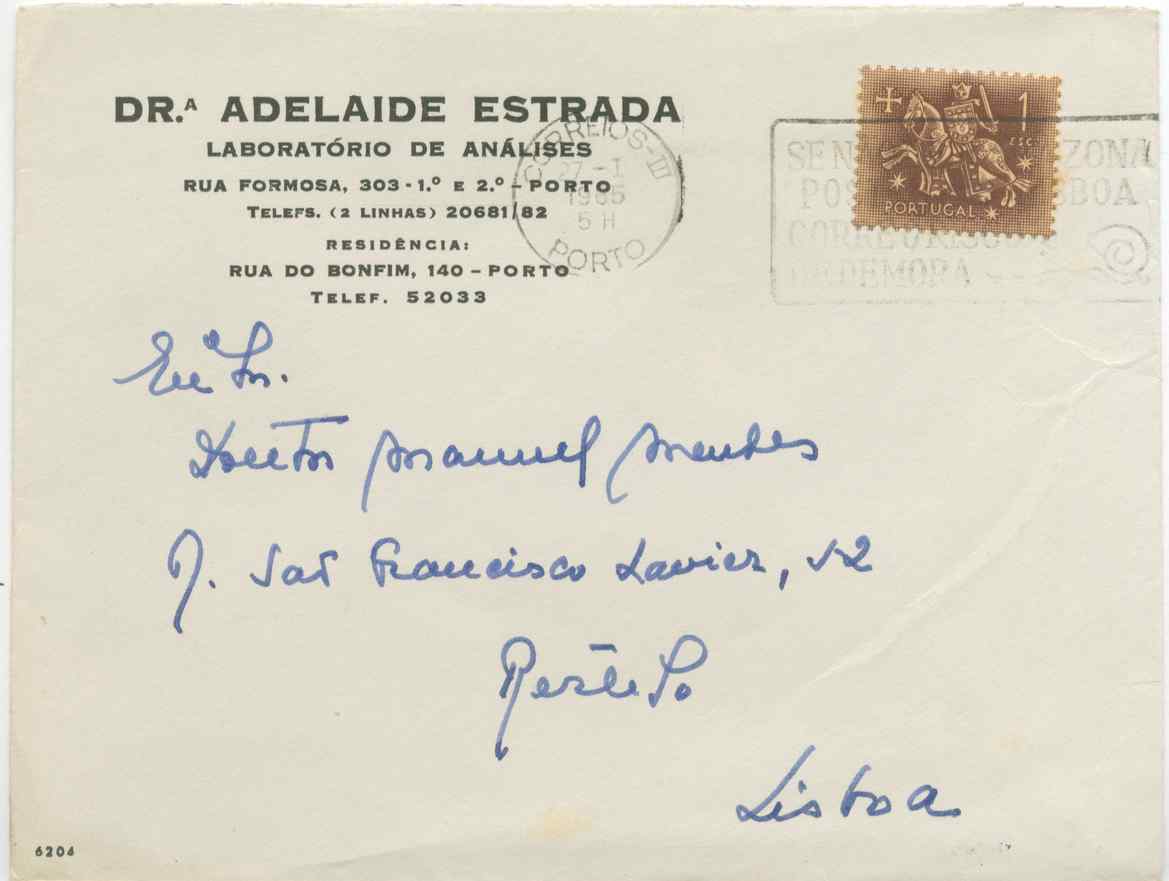 DR.ª ADELAIDE ESTRADA
LABORATÓRIO DE ANÁLISES
RUA FORMOSA, 303-1.º E 2.º - PORTO
TELEFS. (2 LINHAS) 20681/82
RESIDÊNCIA:
RUA DO BONFIM, 140 - PORTO
TELEF. 52033
CORREIOS-III
27 -I
1965
5 H
PORTO
1
ESC.
PORTUGAL
ZONA
LISBOA
CORRE O RISCO
DE DEMORA
Exº Sr.
Doutor Manuel Mendes
R. São Francisco Xavier, 12
Restelo
Lisboa
6204